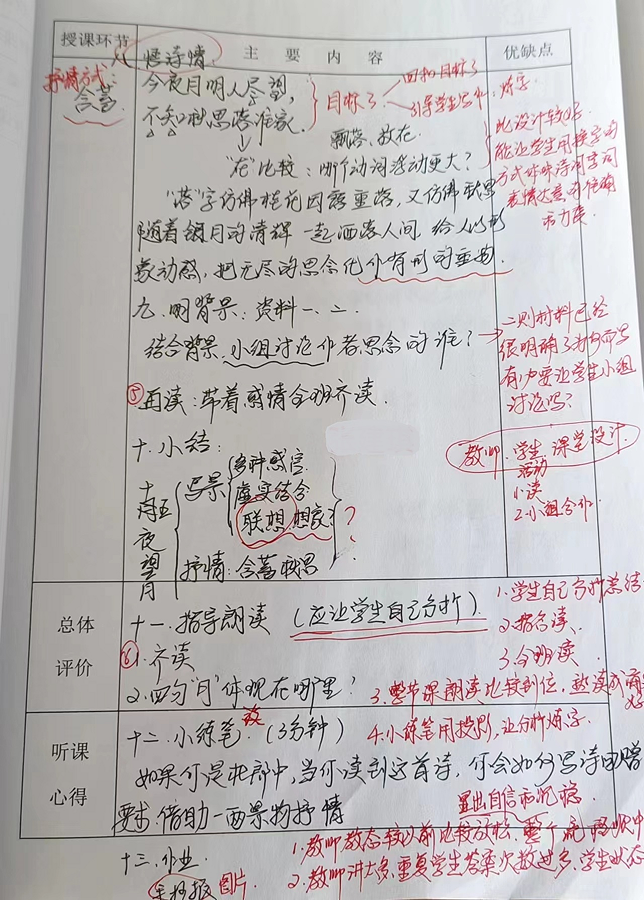 授课环节 主要内容 优缺点
悟诗情
抒情方式：
含蓄
今夜月明人尽望，
不知秋思落谁家。
目标了
回扣目标了
引导学生品味，炼字
飘落、放在
"在"比较：哪个动词活动更大？
此设计较好
能让学生用换字的
方式体味诗词字词
表情达意的准确
"落"字仿佛桂花因露重落，又仿佛秋思
随着银月的清辉一起洒落人间，给人以形
象动感，把无尽的思念化
九、明背景：资料一、二
结合背景，小组讨论作者思念的谁？
二则材料已经
很明确了为何而写
有必要让学生小组
讨论吗？
⑤再读：带着感情全班齐读．
十、小结：
教师、学生、课堂设计．
活动
1.读
2.小组合作．
十五夜望月
写景
多种感官
虚实结合
联想、想象？
？
抒情：含蓄秋思
总体
评价
十一、指导朗读（应让学生自己分析）．
1.学生自己分析总结
2.指名读．
3.分班读
⑥1.齐读
2.四句"月"体现在哪里？
3.整节课朗读比较到位，
听课
心得
十二、小练笔．（3分钟）
4.小练笔用投影，让分析炼字．
如果你是杜郎中，当你读到这首诗，你会如何写诗回赠
要求：借助一两景物抒情
显出自信和沉稳
十三、作业
手抄报 图片
1.教师教态较以前比较放松，整个
2.教师讲太多，重复学生答案次数过多，学生状态